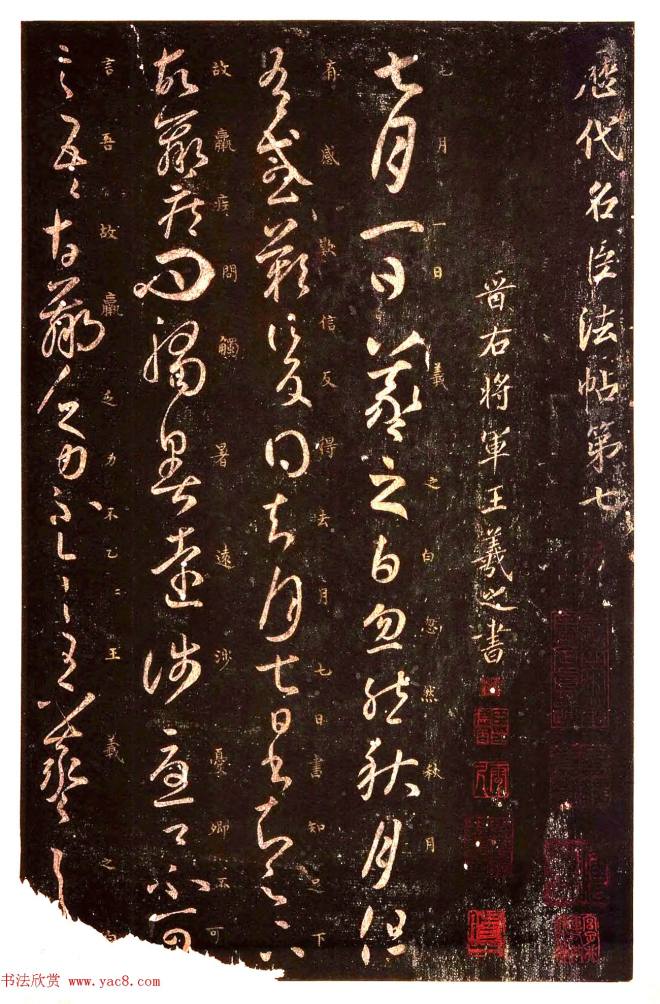 歷代名臣法帖第七
晉右將軍王羲之書
七月一日羲之白忽然秋月
七月一日羲之白忽然秋月但
有感歎信反得去月七日書知足下
有感歎信反得去月七日書知足下
故羸疾問觸暑遠涉憂卿不可
故羸疾問觸暑遠涉憂卿不可
言吾故羸乏力不乙二王羲之
言吾故羸乏力不一一王羲之
书法欣赏 www.yac8.com